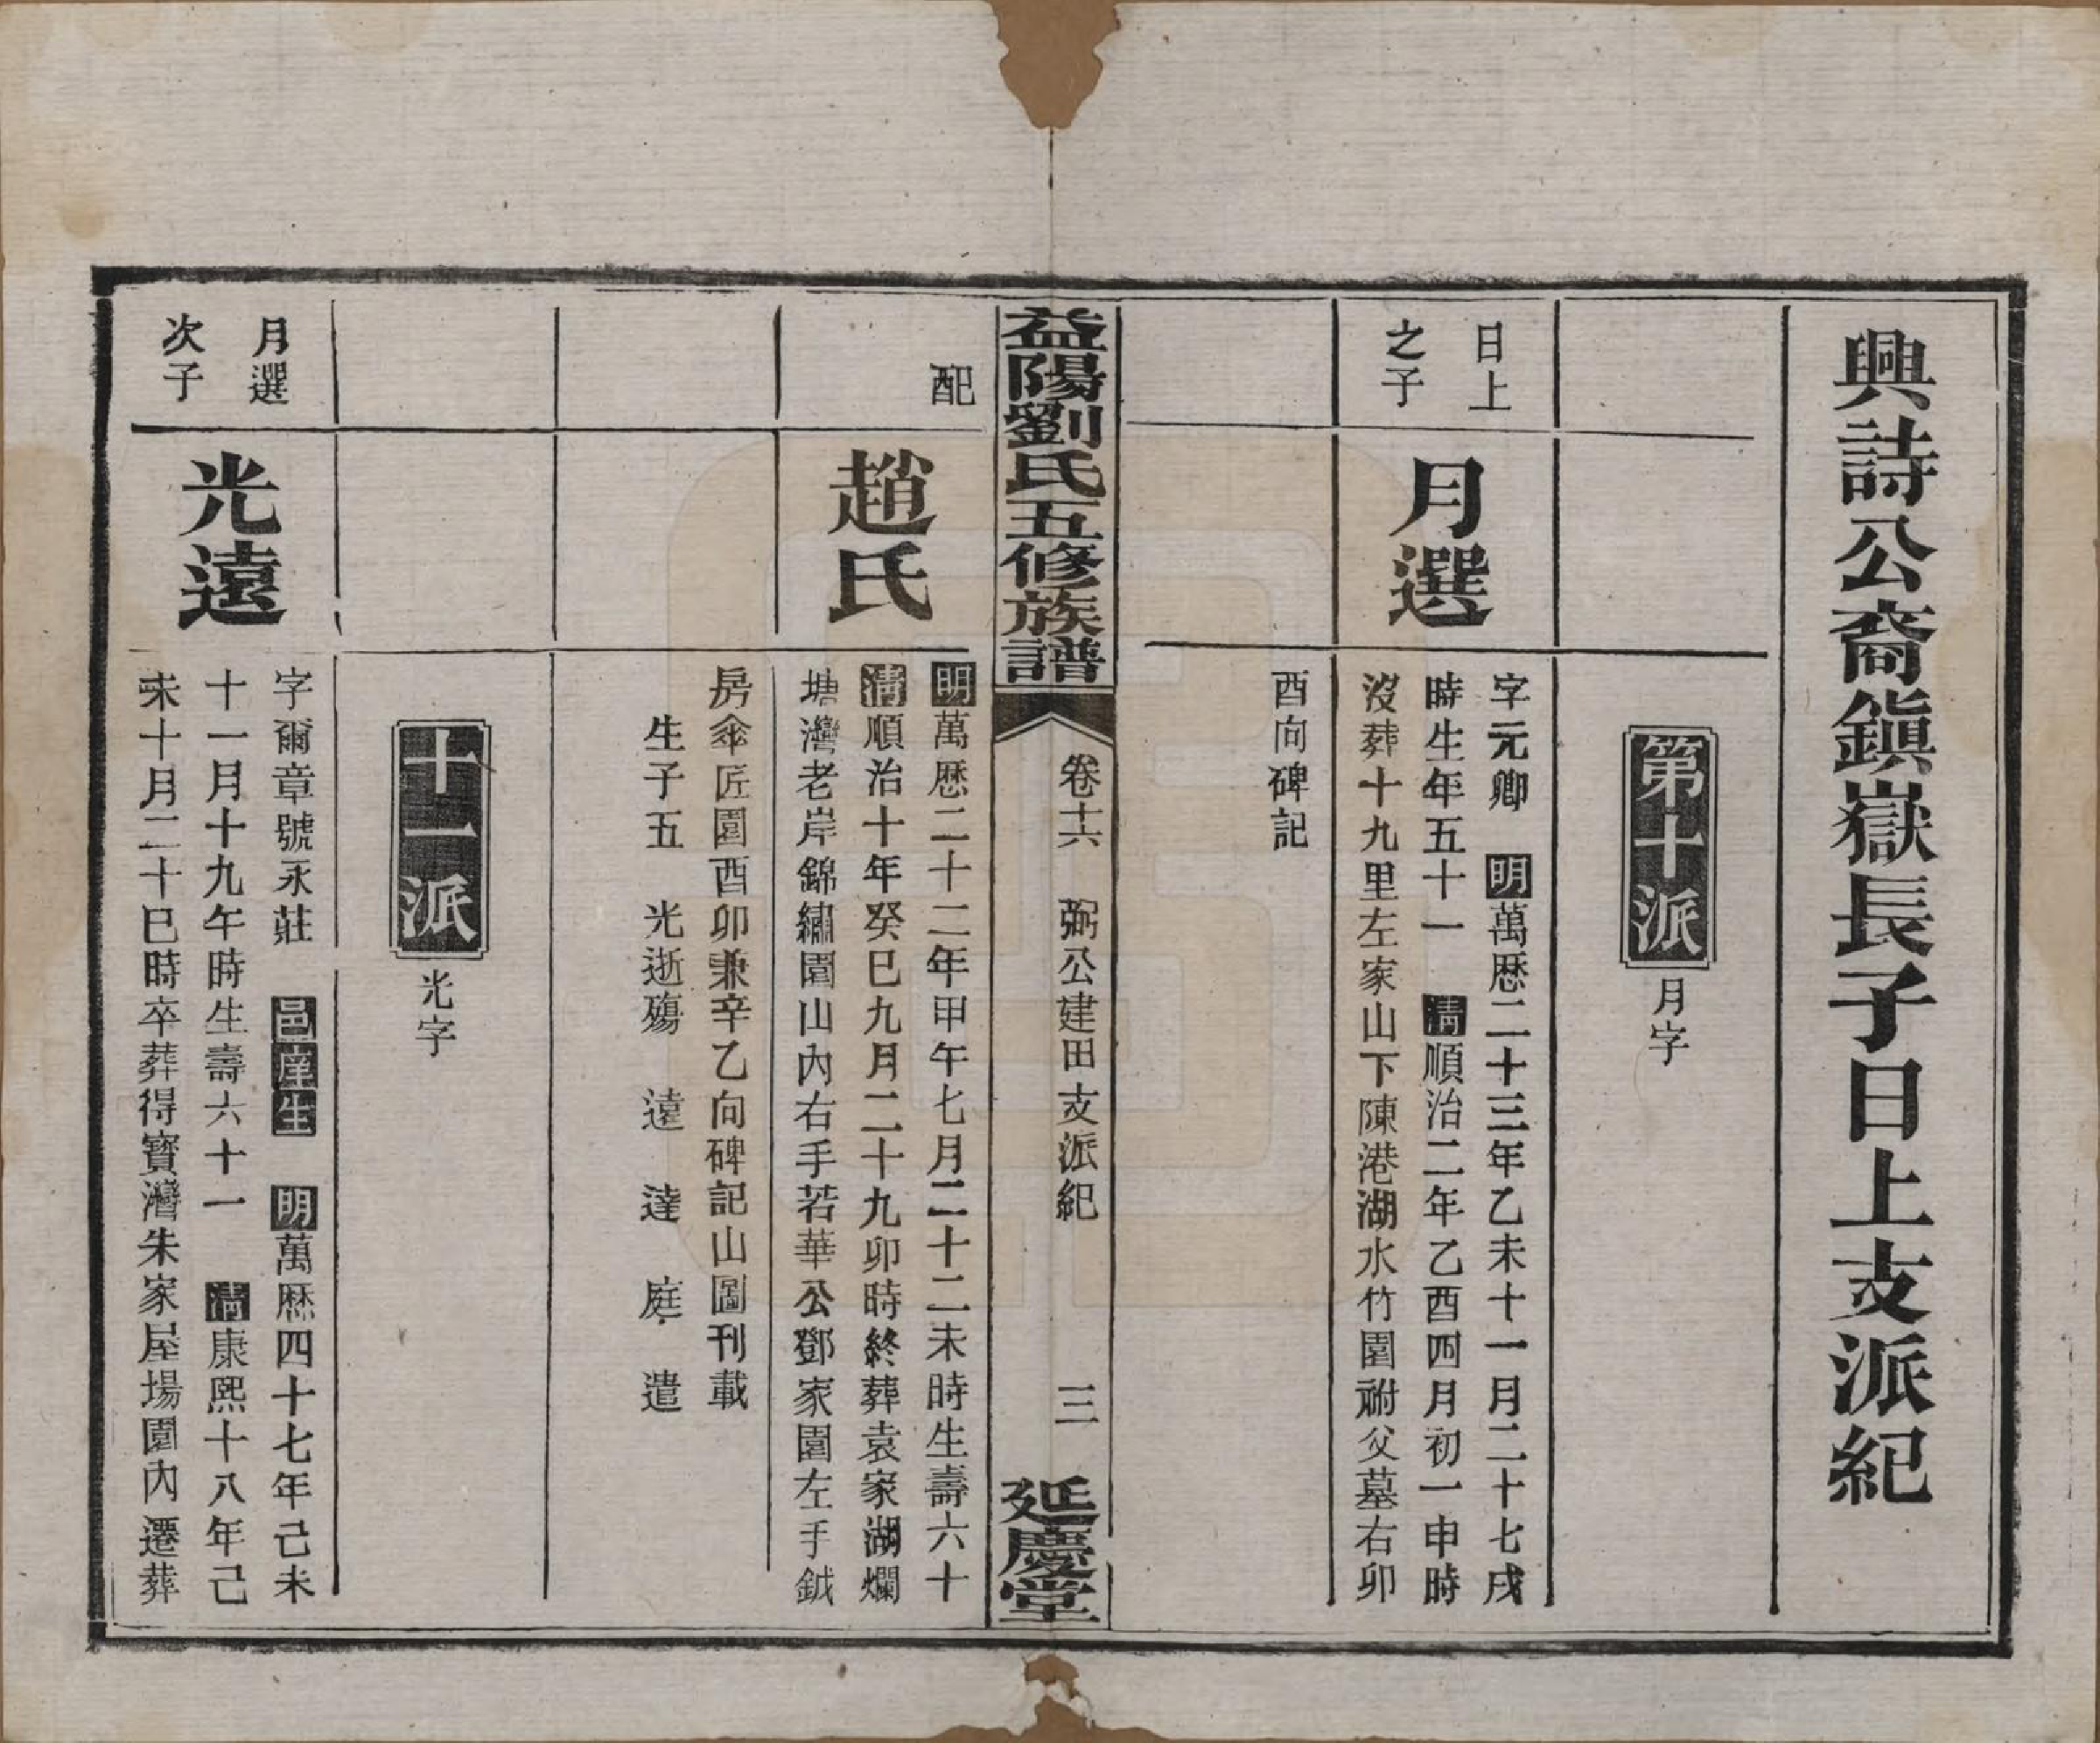 興詩公裔鎮嶽長子日上支派紀
第十派 月字
日上
之子
月選
字元卿 明萬厯二十三年乙未十一月二十七戌
時生年五十一 清順治二年乙酉四月初一申時
沒葬十九里左家山下陳港湖水竹園祔父墓右卯
酉向碑記
益陽劉氏五修族譜
卷十六 弼公建田支派紀 三
延慶堂
配
趙氏
明萬厯二十二年甲午七月二十二未時生壽六十
清順治十年癸巳九月二十九卯時終葬袁家湖爛
塘灣老岸錦繡園山內右手若華公鄧家園左手鉞
房傘匠園酉卯兼辛乙向碑記山圖刊載
生子五 光逝殤 遠 達 庭 遣
十一派 光字
月選
次子
光遠
字爾章號永莊 邑庠生 明萬厯四十七年己未
十一月十九午時生壽六十一 清康熙十八年己
未十月二十巳時卒葬得寶灣朱家屋場園內遷葬